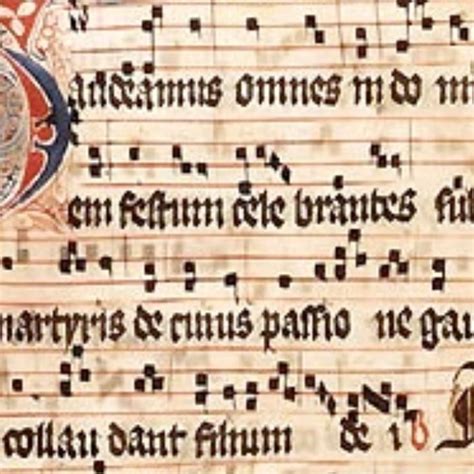 audeamus omnes in do mi
em festum cele brantes su
martyris de cuius passio ne gau
collau dant filium de i